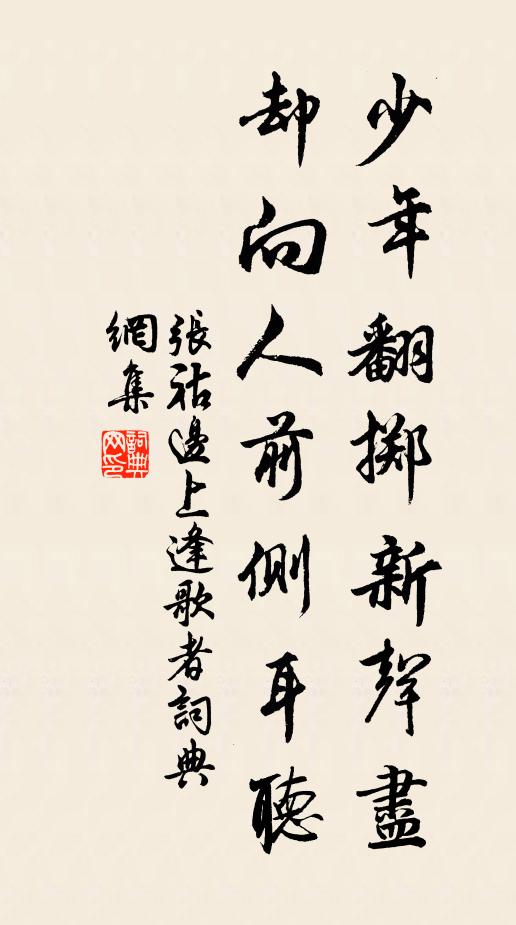 少年翻掷新聲盡
却向人前側耳聽
張祜邊上逢歌者詞典
網集
詞典
网印